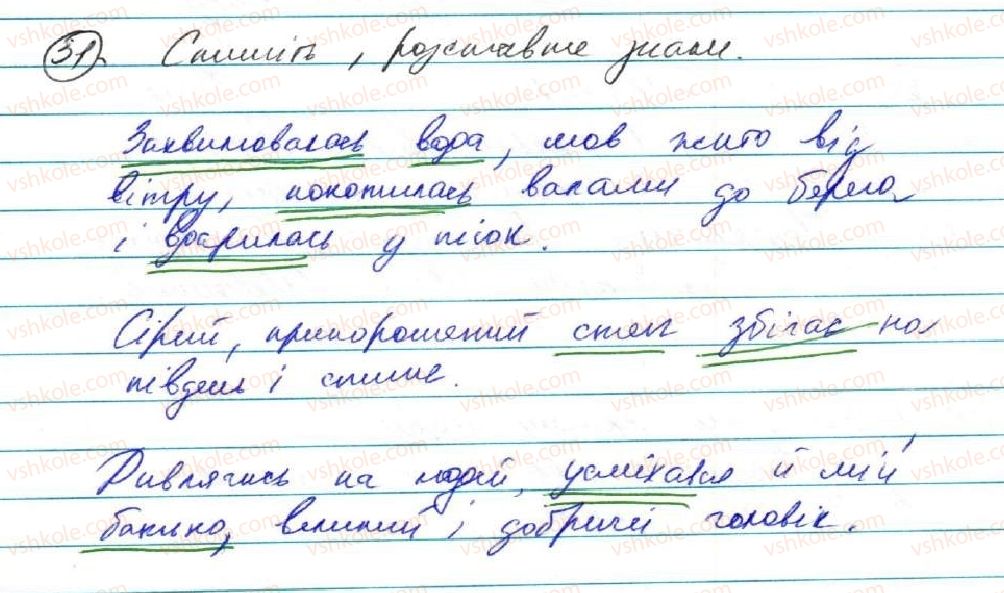 31. Спишіть, розставте знаки.
Захвилювалась вода, мов жито від
вітру, покотилась валами до берега
і вдарилась у пісок.
Сірий, припорошений степ збігає на
південь і спить.
Дивлячись на людей, усміхався й мій
батько, великий і добрячий чоловік.